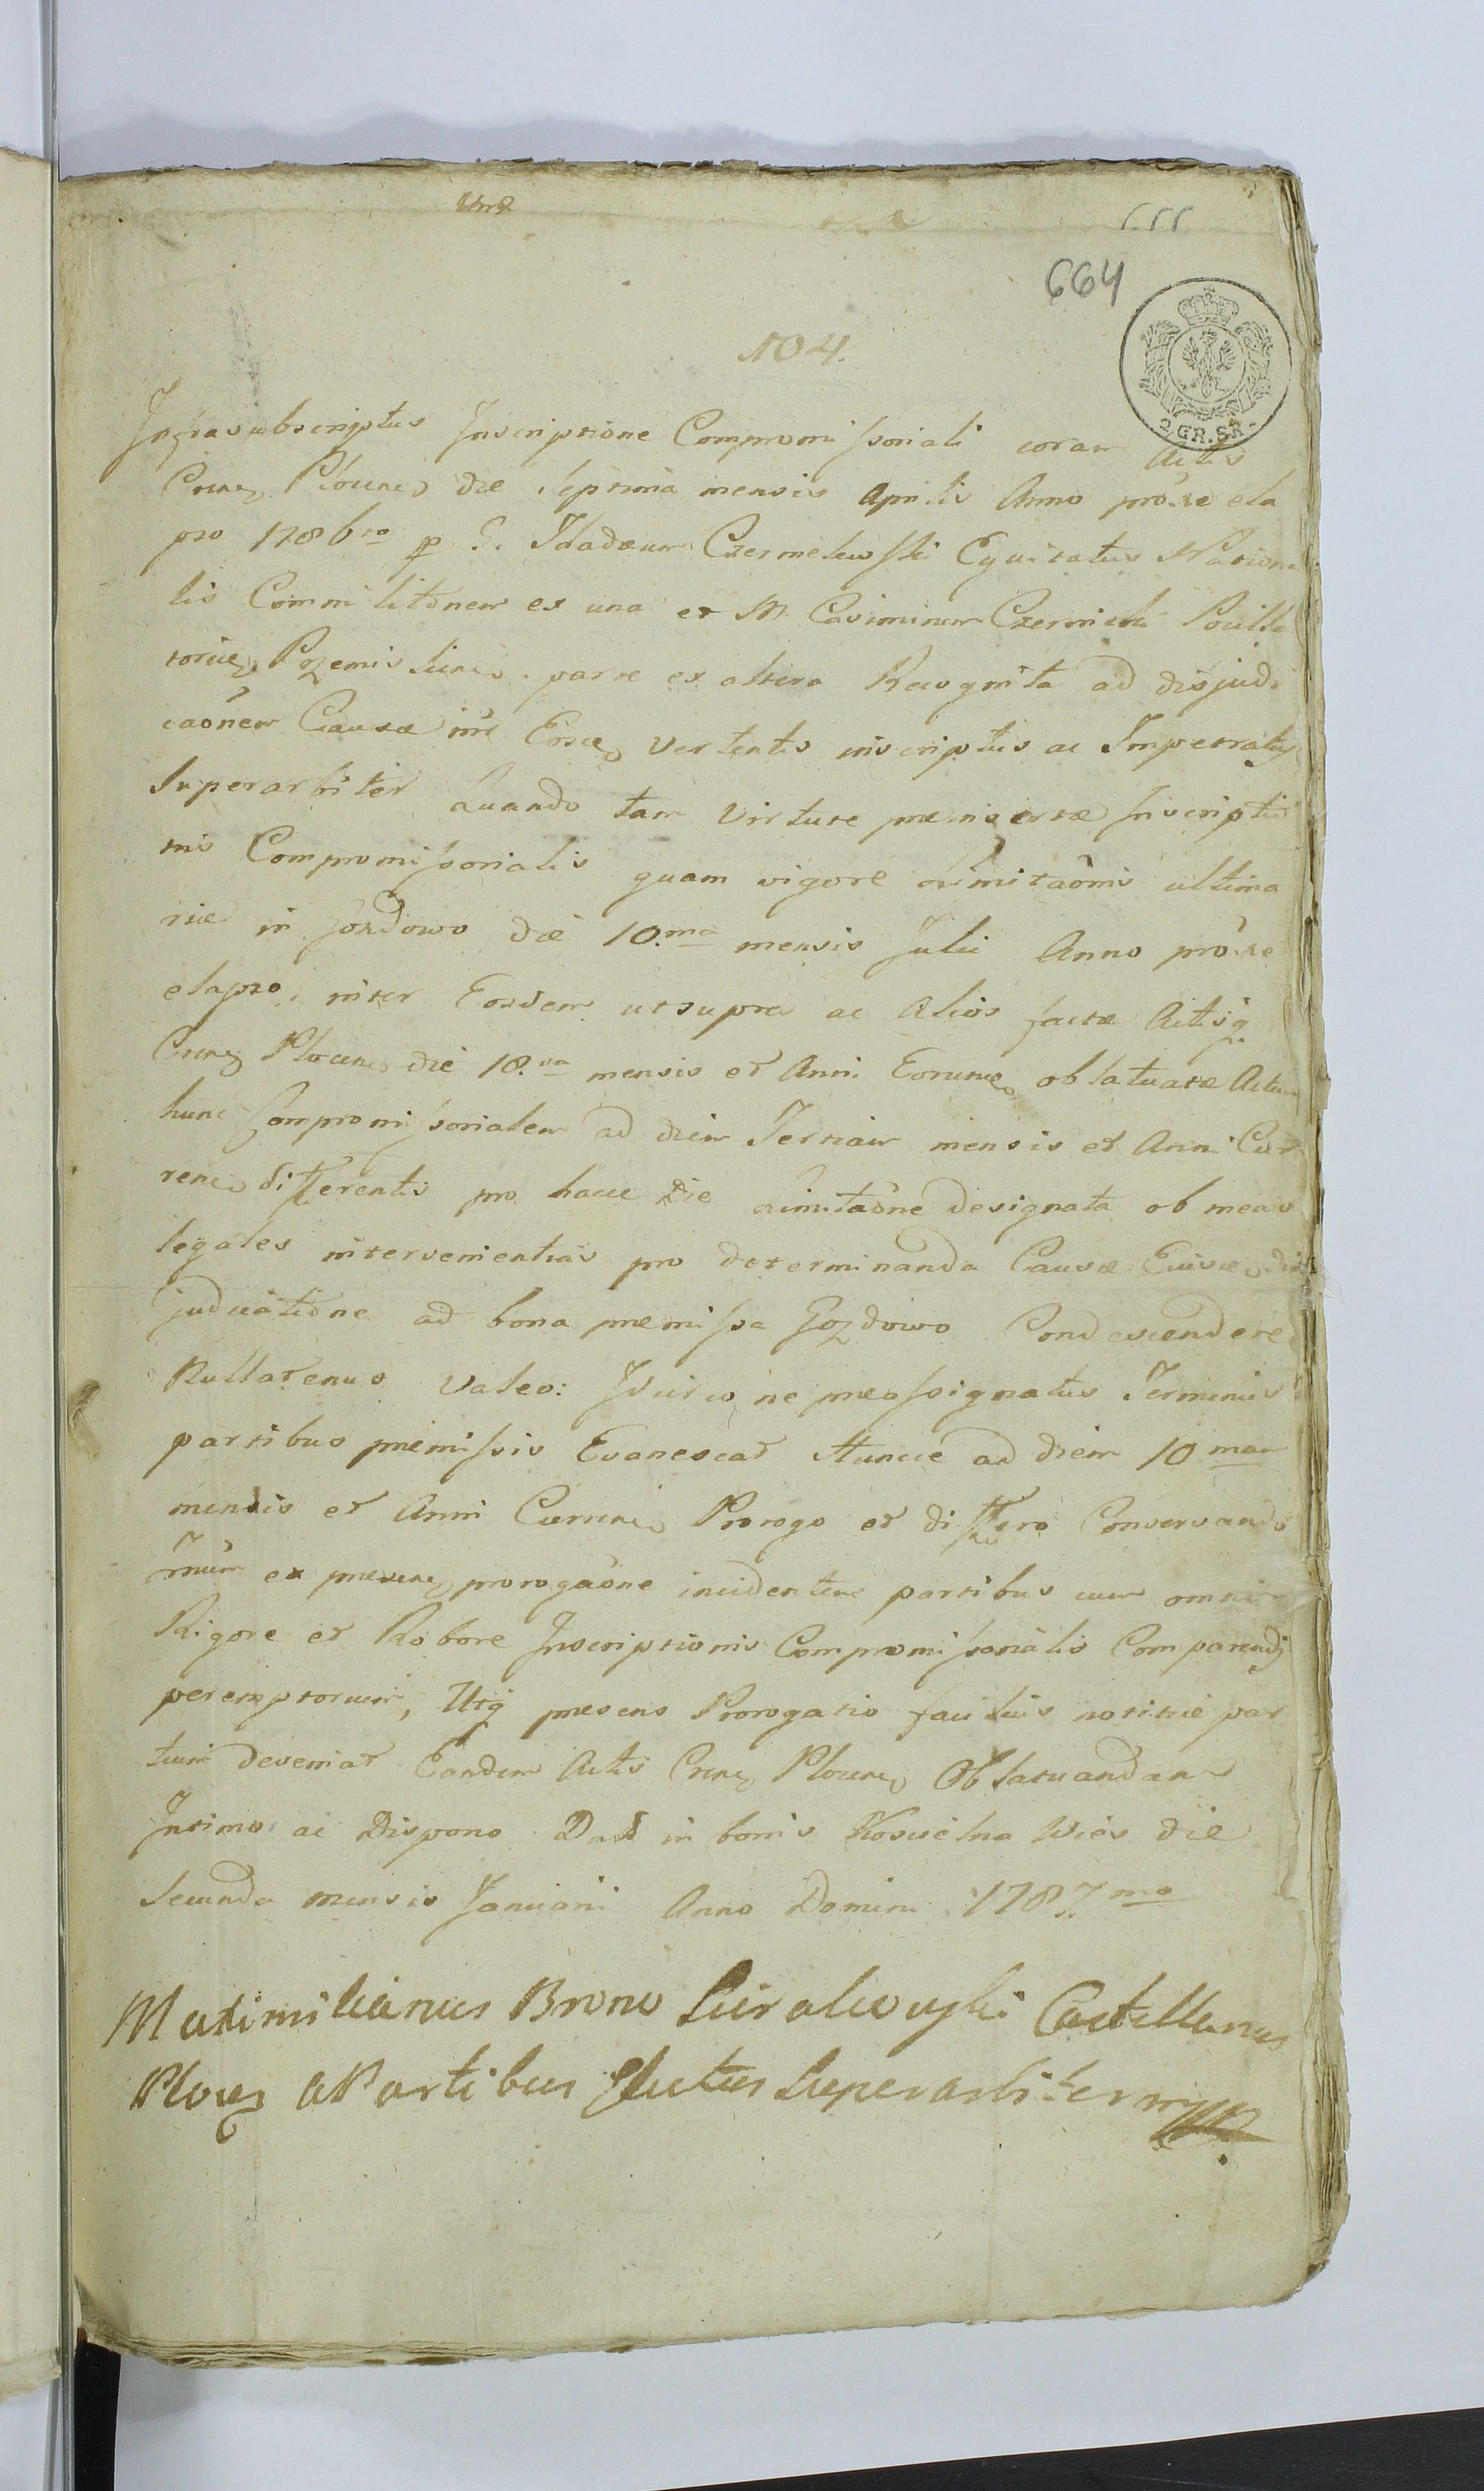 664
104.
2 GR. SR.
Infrascubscriptus Inscriptione Compromissoriali coram Actis
die septima mensis Aprilis Anno pro.xe ela
pso 1786to p G. Thadæum Czermelewski Equitatus Nationa
lis Commilitonem ex una et M. Casimirum
parte ex altera Recognita ad disjudi
caõnem Causæ vertentis inscriptus ac Impetratus
Superarbiter Quando tam virtute præinsertæ Inscriptio
nis Compromissorialis quam vigore limitaõnis ultima
riæ in Gozdowo die 10.ma mensis Julii Anno pro.xe
elapso, inter Eosdem ut supra ac Alios factæ Actisq
Plocen die 18.va mensis et Anni Eorunce oblatuatæ Actum
hunc Compromissorialem ad diem Tertiam mensis et Anni Cur
ren differentis pro hacce Die limitaõne designata ob meas
legales intervenientias pro determinanda Causæ
judicatione ad bona premissa Gozdowo Condescendere
Nullatenus Valeo: Idcirco ne præassignatus Terminus
partibus præmissis Evanescat Huncce ad diem 10 mam
mensis et Anni Curren Prorogo et differo Conservando
rnum ex presen prorogaõne incidentem partibus cum omni
Rigore et Robore Inscriptionis Compromissorialis Comparendi
peremptorium, Utq presens Prorogatio facilius notitiæ par
tium deveniat Eandem Actis Plocen Oblatuandam
Intimo ac Dispono Dat in bonis Koscielna Wies die
Secunda mensis Januarii Anno Domini 1787.mo
Maximilianus Bruno Castellanus
Plocen a Partibus Electus Superarbiter mpp